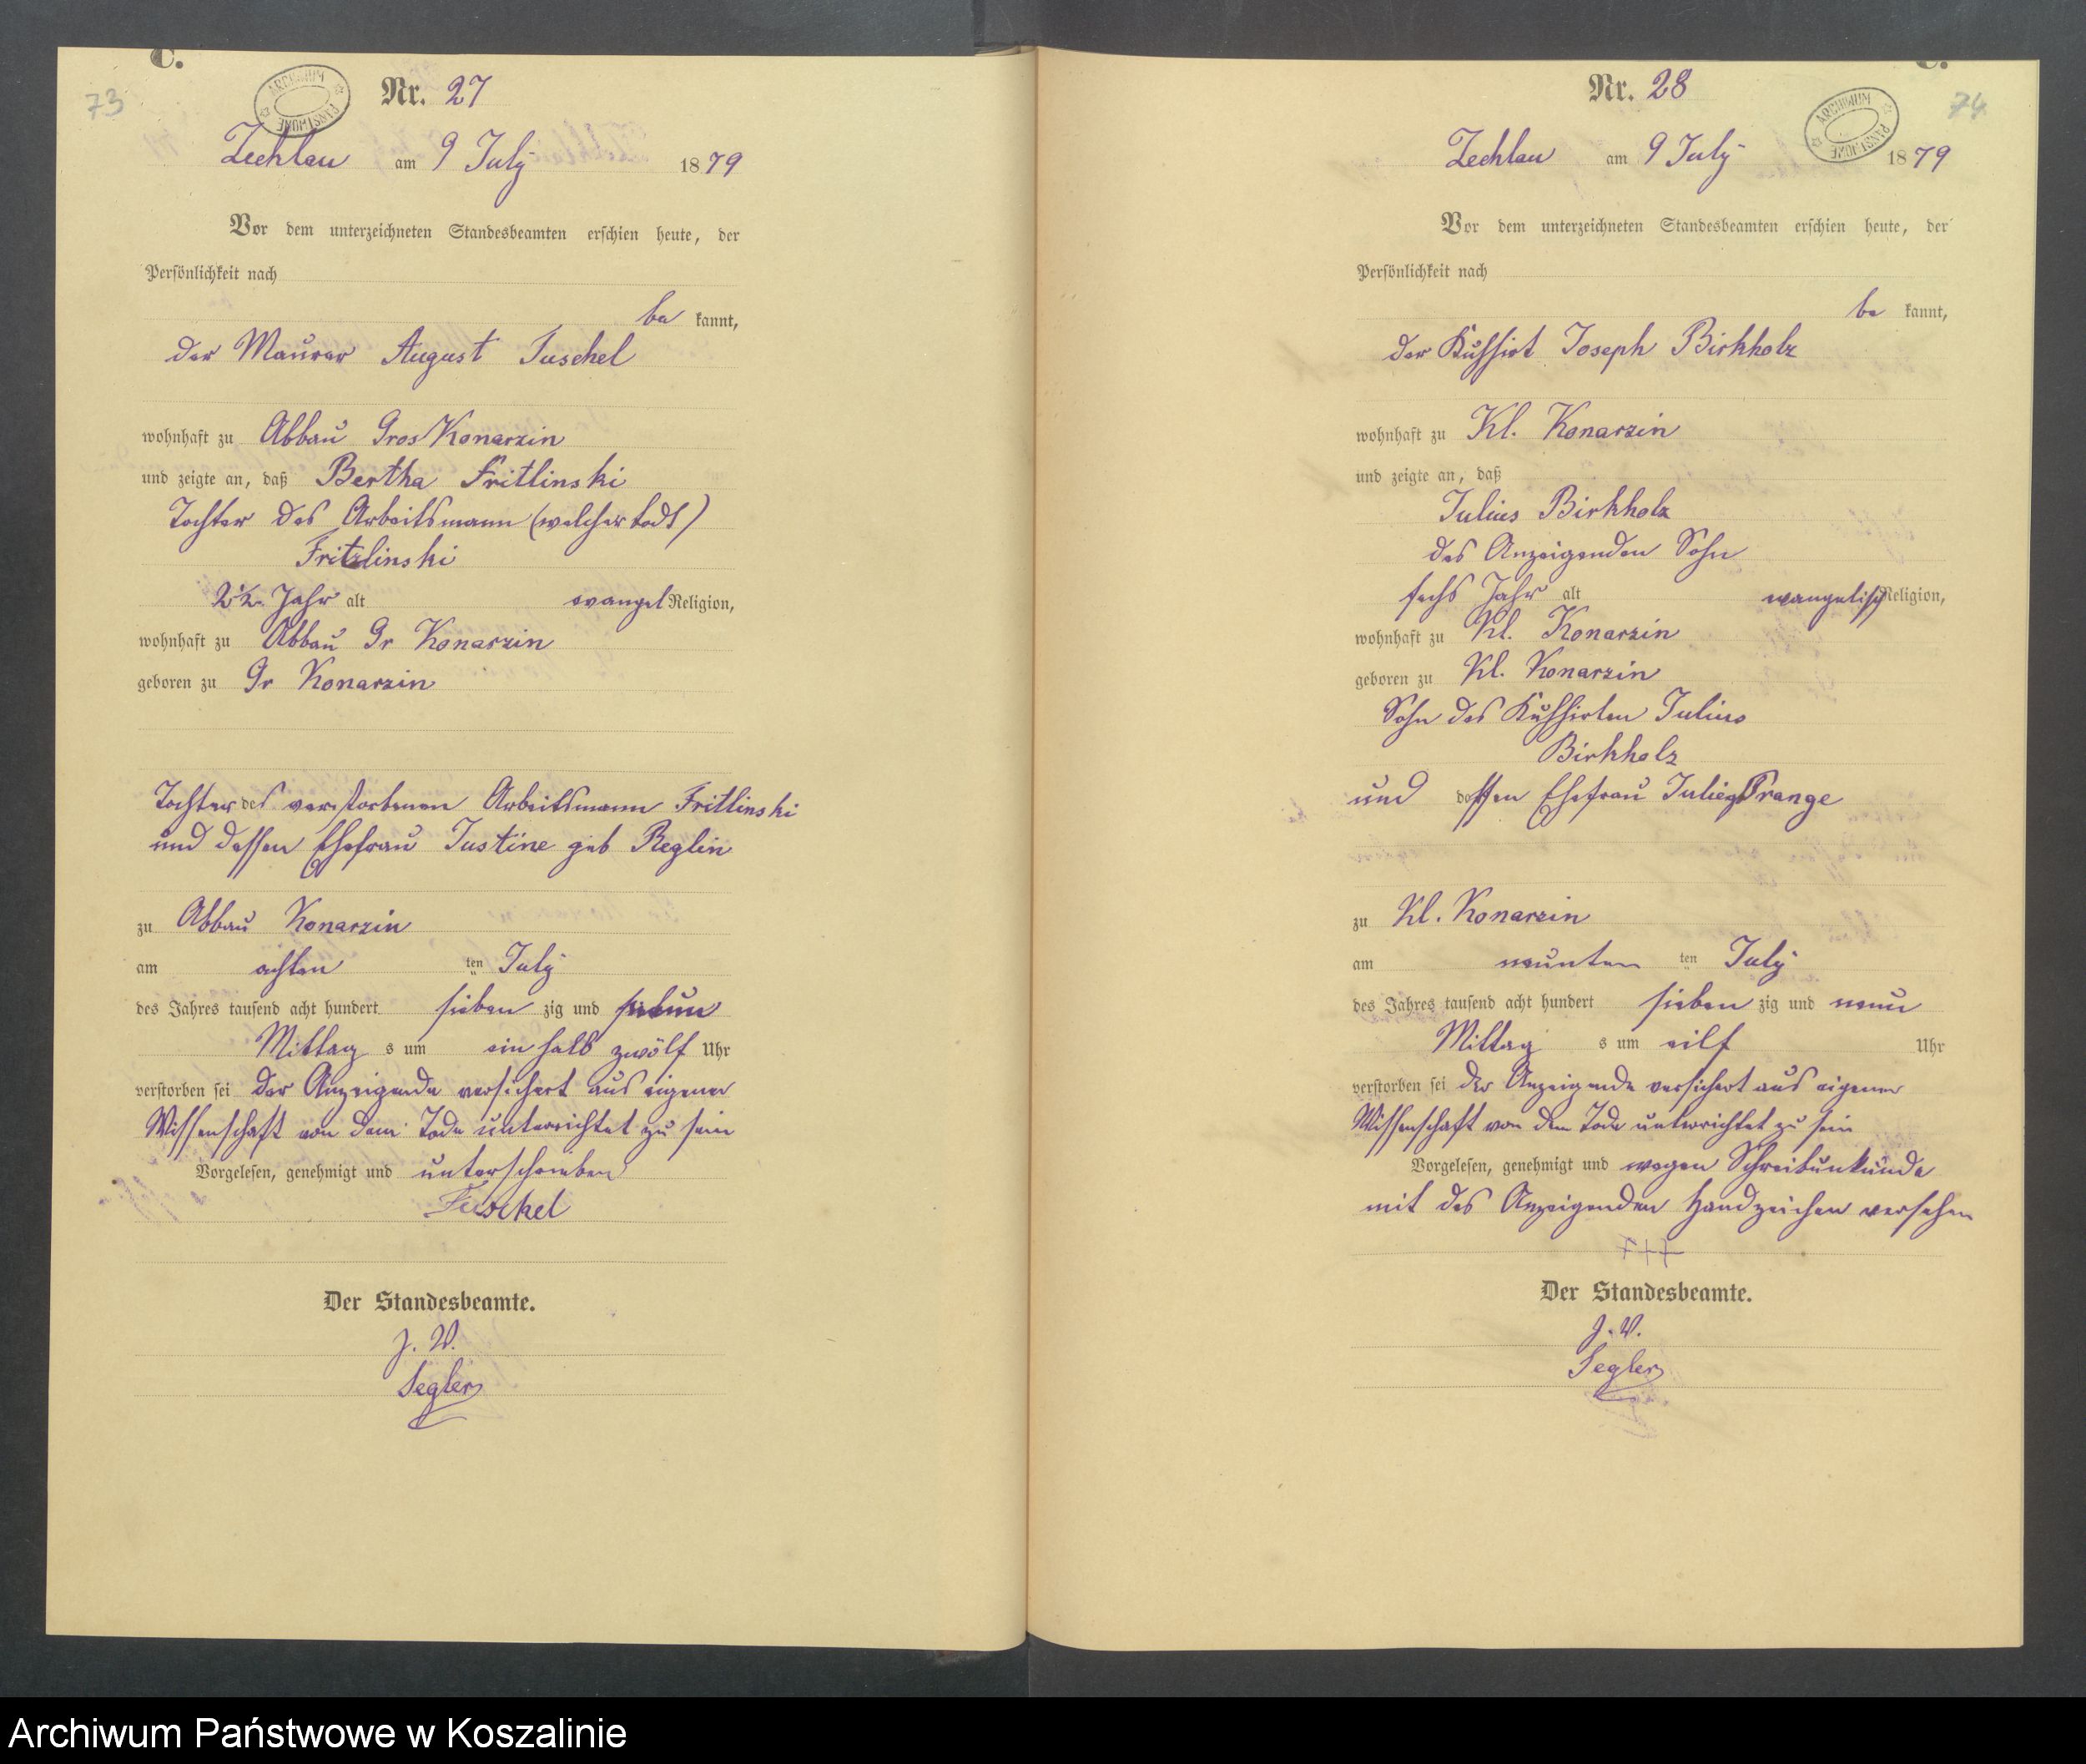 C.
73
ARCHIWUM PAŃSTWOWE
Nr. 27
Zechlau am 9 July 1879
Vor dem unterzeichneten Standesbeamten erschien heute, der
Persönlichkeit nach
be kannt,
der Maurer August Tuschel
wohnhaft zu Abbau Gros Konarzin
und zeigte an, daß Bertha Fritlinski
Tochter des Arbeitsmann (welcher todt)
Fritzlinski
2 1/2 Jahr alt evangel Religion,
wohnhaft zu Abbau Gr Konarzin
geboren zu Gr Konarzin
Tochter des verstorbenen Arbeitsmann Fritlinski
und dessen Ehefrau Justine geb Reglin
zu Abbau Konarzin
am achten ten July
des Jahres tausend acht hundert sieben zig und neun
Mittag s um ein halb zwölf Uhr
verstorben sei der Anzeigende versichert aus eigener
Wissenschaft von dem Tode unterrichtet zu sein
Vorgelesen, genehmigt und unterschrieben
Tuschel
Der Standesbeamte.
J. V.
Segler
C.
74
ARCHIWUM PAŃSTWOWE
Nr. 28
Zechlau am 9 July 1879
Vor dem unterzeichneten Standesbeamten erschien heute, der
Persönlichkeit nach
be kannt,
der Kuhhirt Joseph Birkholz
wohnhaft zu Kl. Konarzin
und zeigte an, daß
Julius Birkholz
des Anzeigenden Sohn
sechs Jahr alt evangelisch Religion,
wohnhaft zu Kl. Konarzin
geboren zu Kl. Konarzin
Sohn des Kuhhirten Julius
Birkholz
und dessen Ehefrau Julie Prange
zu Kl. Konarzin
am neunten ten July
des Jahres tausend acht hundert sieben zig und neun
Mittag s um eilf Uhr
verstorben sei der Anzeigende versichert aus eigener
Wissenschaft von dem Tode unterrichtet zu sein
Vorgelesen, genehmigt und wegen Schreibunkunde
mit des Anzeigenden Handzeichen versehen
+++
Der Standesbeamte.
J. V.
Segler
Archiwum Państwowe w Koszalinie